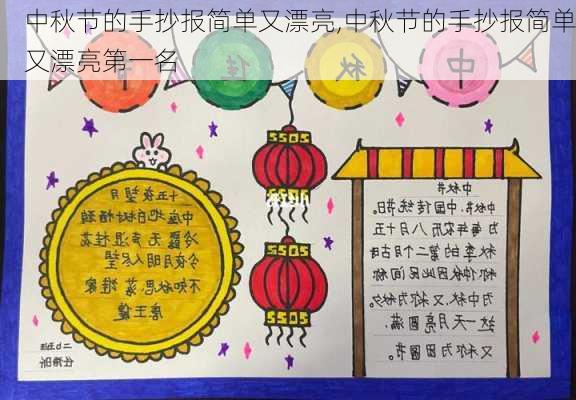 中秋节的手抄报简单又漂亮,中秋节的手抄报简单
又漂亮第一名
中秋佳节
十五夜望月
中庭地白树栖鸦
冷露无声湿桂花
今夜月明人尽望
不知秋思落谁家
唐王建
中秋节
中秋节,中国传统节日。
为每年农历八月十五
秋季的第二个月古
称仲秋因此民间称
为中秋又称为秋夕。
这一天月亮圆满,
又称为团圆节。